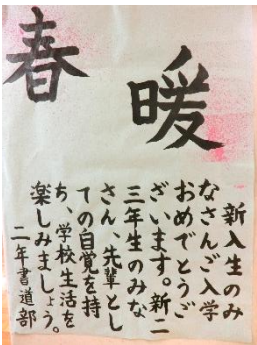 春暖
新入生のみ
なさんご入学
おめでとうご
ざいます。新二
三年生のみな
さん、先輩とし
ての自覚を持
ち、学校生活を
楽しみましょう。
二年書道部